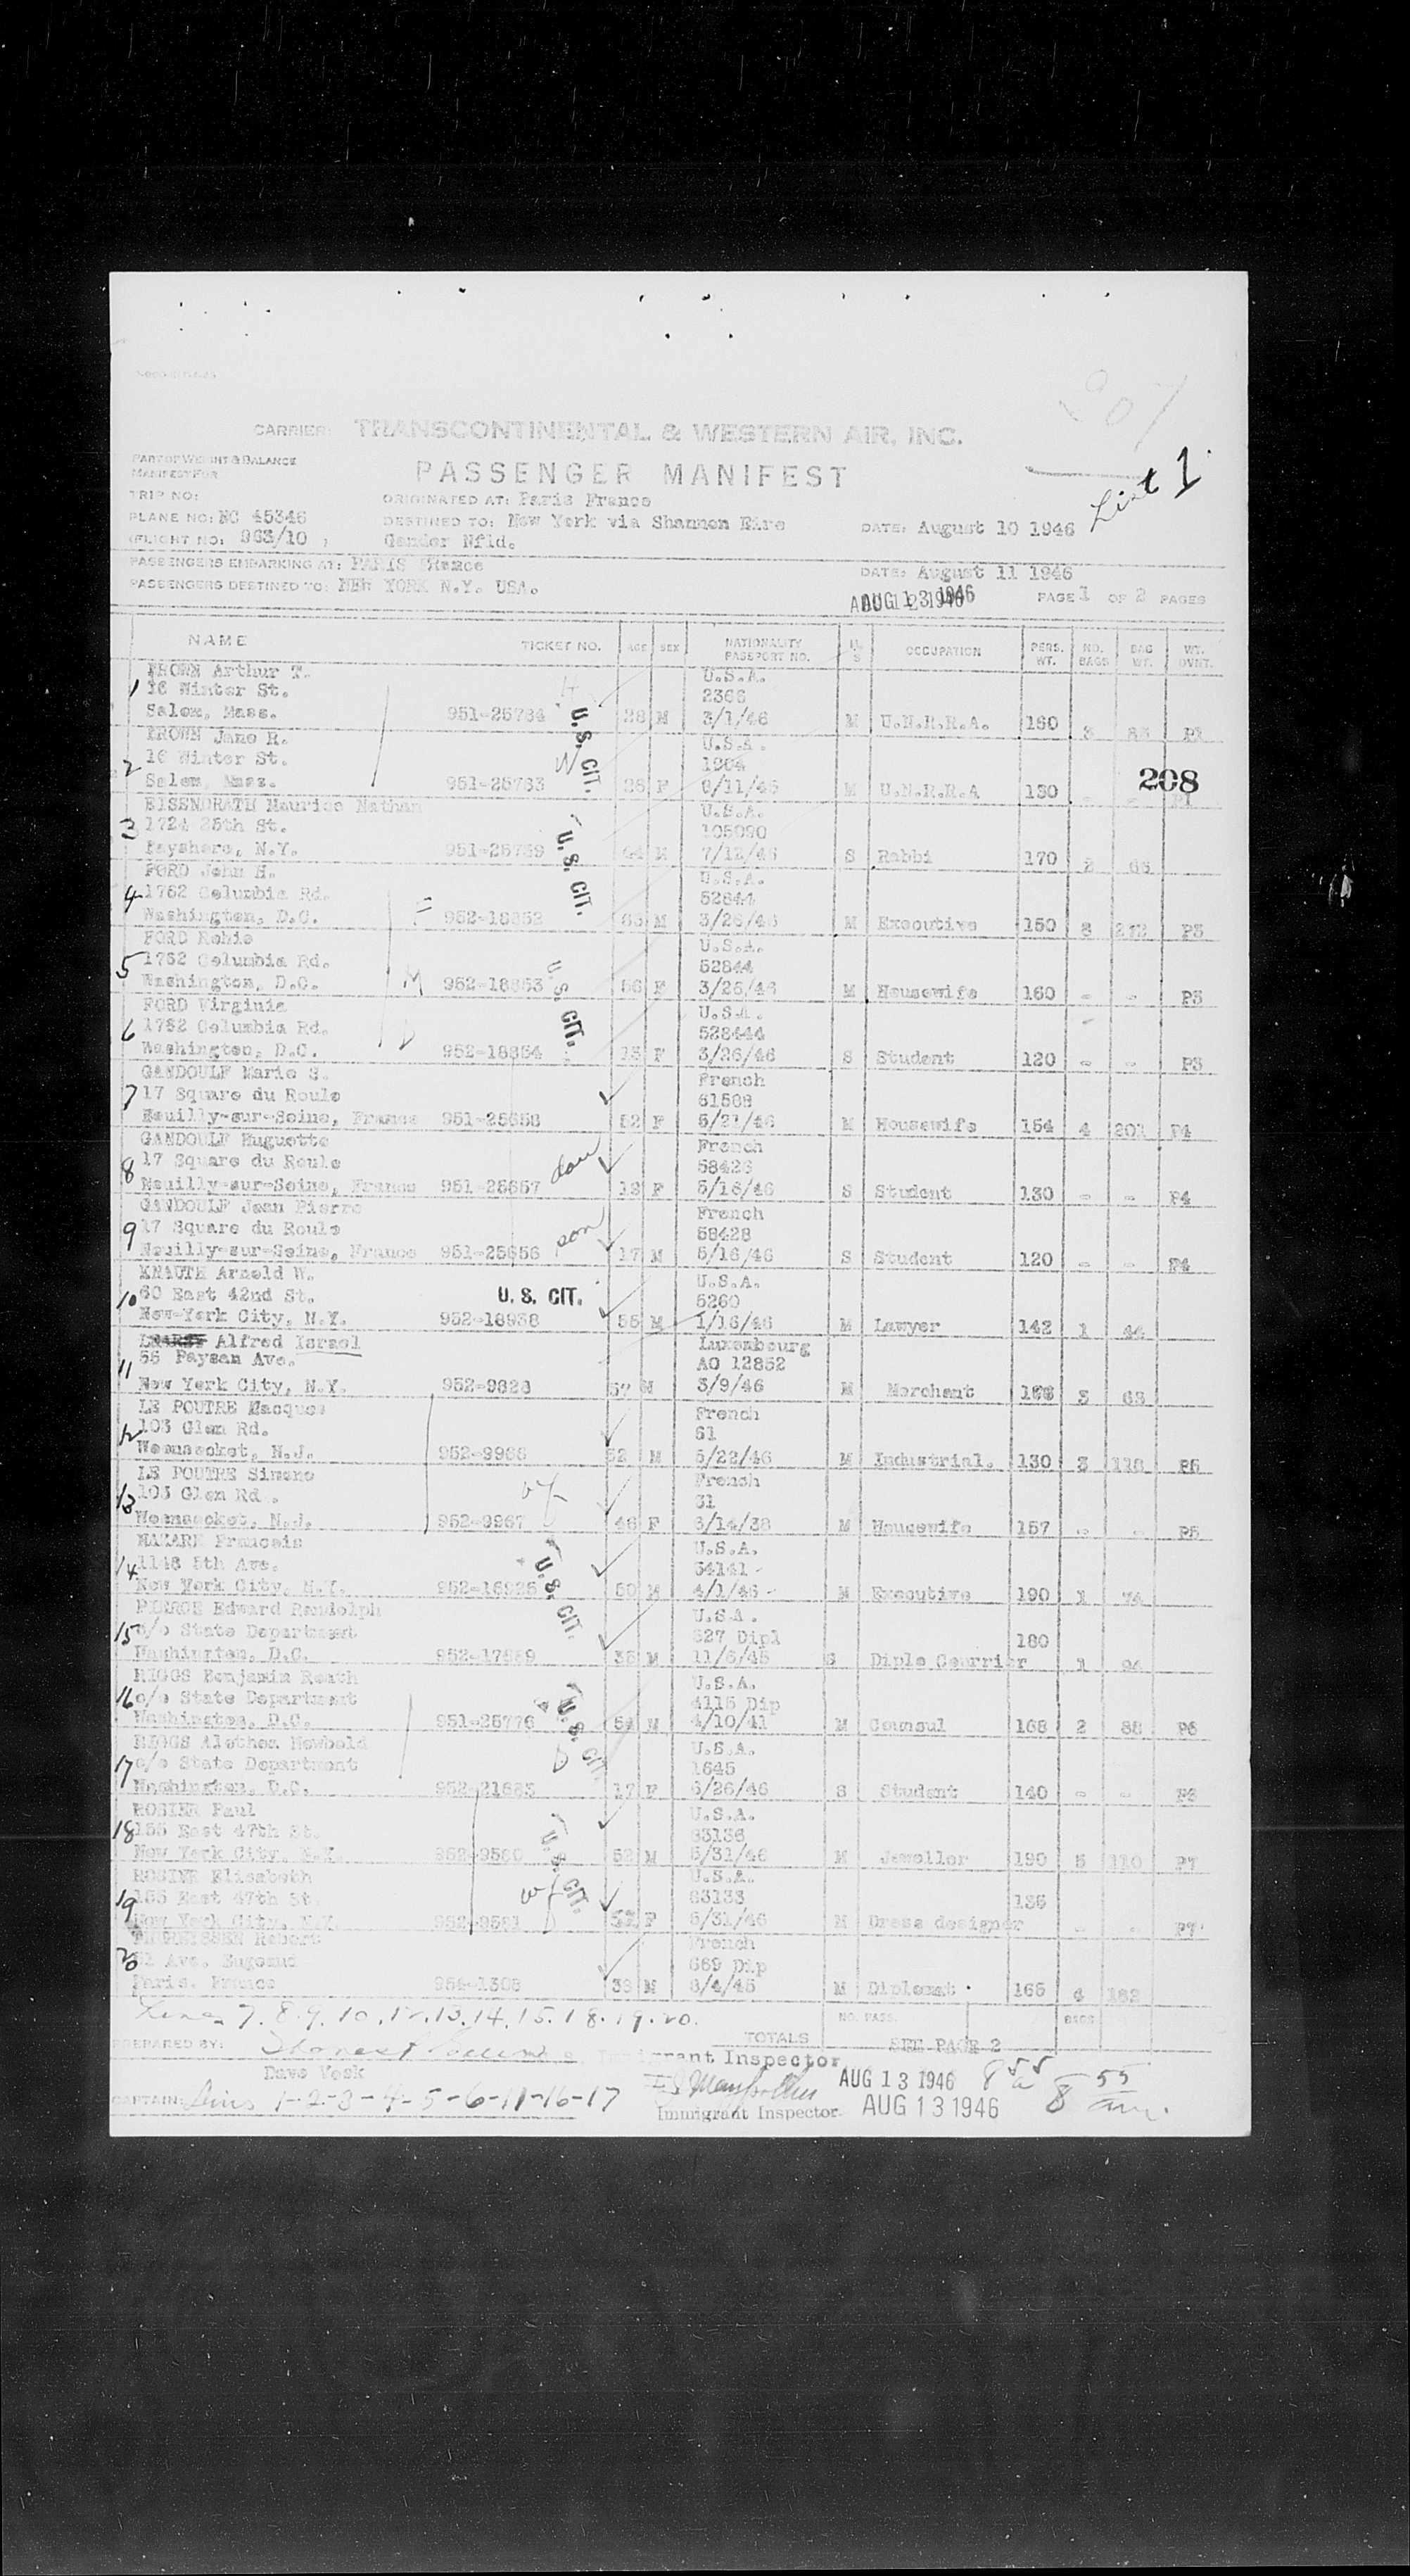 207
List 1
CARRIER: TRANSCONTINENTAL & WESTERN AIR, INC.
PART OF WEIGHT & BALANCE
MANIFEST FOR
PASSENGER MANIFEST
TRIP NO:
ORIGINATED AT: Paris France
PLANE NO: NC 45346
DESTINED TO: New York via Shannon Eire
DATE: August 10 1946
FLIGHT NO: 963/10
Gander Nfld.
PASSENGERS EMBARKING AT: PARIS France
DATE: August 11 1946
PASSENGERS DESTINED TO: NEW YORK N.Y. USA.
AUG 13 1946
PAGE 1 OF 2 PAGES
NAME TICKET NO. AGE SEX NATIONALITY PASSPORT NO. M S OCCUPATION PERS. WT. NO. BAGS BAG WT. WT. OVNT.
BROWN Arthur T. U.S.A.
1 16 Winter St. H 2366
Salem, Mass. 951-25784 U. S. CIT. 28 M 3/1/46 M U.N.R.R.A. 160 3 P1
BROWN Jane R. U.S.A.
2 16 Winter St. W
Salem Mass. 951-25783 F M U.N.R.R.A 130 - - P1
208
EISENDRATH Maurice Nathan U.S.A.
3 1724 25th St. 105090
Bayshore, N.Y. U. S. CIT. 44 M 7/12/46 S Rabbi 170 2
FORD John H. U.S.A.
4 1752 Columbia Rd. 52844
Washington, D.C. 952-18852 M 3/26/46 M Executive 150 8 P3
FORD U.S.A.
5 1752 Columbia Rd. 52844
Washington, D.C. M 952-18853 U. S. CIT. 56 F 3/26/46 M Housewife 160 - - P3
FORD Virginia U.S.A.
6 1752 Columbia Rd. D 528444
Washington, D.C. 952-18854 F 3/26/46 S Student 120 - - P3
GANDOULF Marie S. French
7 17 Square du Roule 61508
Neuilly-sur-Seine, France 951-25658 52 F 5/21/46 M Housewife 154 4 201 P4
GANDOULF Huguette French
8 17 Square du Roule dau 58426
Neuilly-sur-Seine, France 951-25657 18 F 5/16/46 S Student 130 - - P4
GANDOULF Jean Pierre French
9 17 Square du Roule son 58428
Neuilly-sur-Seine, France 951-25656 17 M 5/16/46 S Student 120 - - P4
KNAUTH Arnold W. U.S.A.
10 60 East 42nd St. U. S. CIT. 5260
New-York City, N.Y. 952-18938 55 M 1/16/46 M Lawyer 142 1 46
Alfred Israel Luxembourg
11 55 Paysan Ave. AO 12852
New York City, N.Y. 952-9828 57 M 3/9/46 M Merchant 3 63
LE POUTRE Jacques French
12 103 Glen Rd. 61
Woonsocket, N.J. 952-9966 52 M 5/22/46 M Industrial. 130 3 118 P5
LE POUTRE Simone French
13 103 Glen Rd. wf 31
Woonsocket, N.J. 952-9967 46 F 6/14/38 M Housewife 157 - - P5
Francois U.S.A.
14 1148 5th Ave. 54141
New York City, N.Y. U. S. CIT. 50 M 4/1/46 M Executive 190 1 74
PIERCE Edward Randolph U.S.A.
15 c/o State Department 527 Dipl 180
Washington, D.C. M 11/6/45 S Diplo Courrier 1
RIGGS Benjamin Reath U.S.A.
16 c/o State Department 4115 Dip
Washington, D.C. 951-25776 U. S. CIT. 54 M 4/10/41 M Counsul 168 2 88 P6
RIGGS Alethea Newbold U.S.A.
17 c/o State Department D 1645
Washington, D.C. 952-21885 17 F 6/26/46 S Student 140 - - P6
ROSIER Paul U.S.A.
18 155 East 47th St. 83136
New York City, N.Y. 952-9580 U. S. CIT. 52 M 5/31/46 M Jeweller 190 5 110 P7
ROSIER Elisabeth U.S.A.
19 155 East 47th St. wf 83133 136
New York City, N.Y. 952-9581 F 5/31/46 M Dress designer - - P7
Robert French
20 Ave. 669 Dip
Paris, France 38 M 8/4/45 M Diplomat 165 4
Lines 7. 8. 9. 10. 12. 13. 14. 15. 18. 19. 20.
NO. PASS. BAGS
PREPARED BY: TOTALS SEE PAGE 2
Immigrant Inspector
Dave Vosk
AUG 13 1946 8 55 a
CAPTAIN: Lines 1-2-3-4-5-6-11-16-17
Immigrant Inspector. AUG 13 1946 8 55 am.